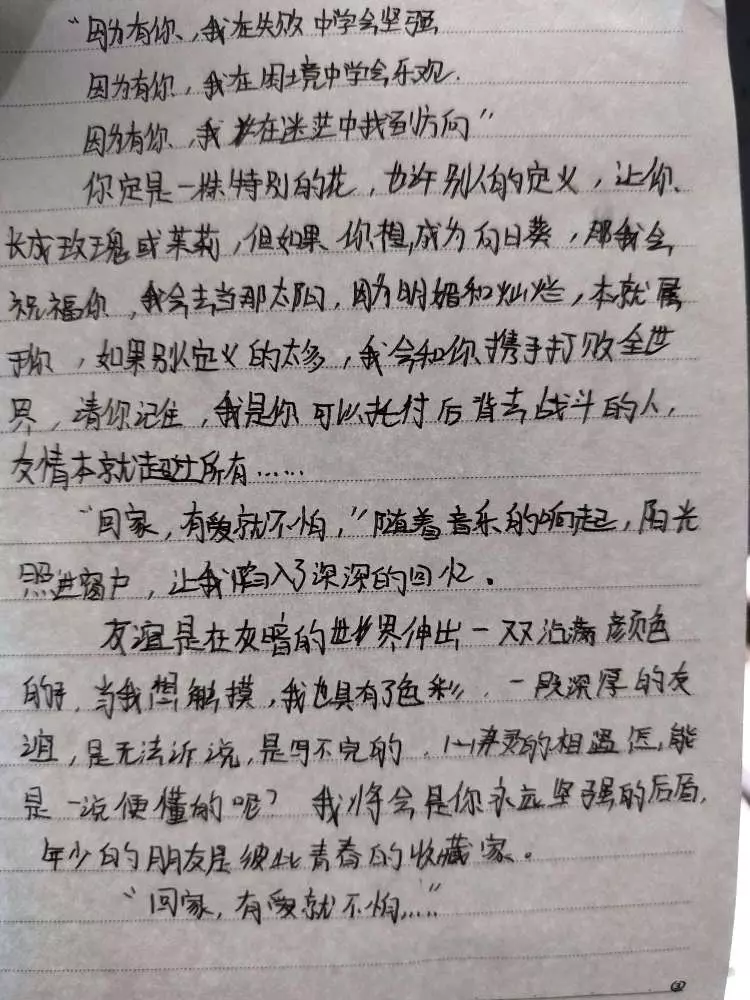 “因为有你、我在失败中学会坚强
因为有你，我在困境中学会乐观.
因为有你、我在迷茫中找到方向”
你定是一株特别的花，也许别人的定义，让你、
长成玫瑰或茉莉，但如果你想成为向日葵，那我会
祝福你，我会去当那太阳，因为明媚和灿烂，本就属
于你，如果别人定义的太多，我会和你携手打败全世
界，请你记住，我是你可以托付后背去战斗的人，
友情本就超过所有……
“回家，有爱就不怕，”随着音乐的响起，阳光
照进窗户，让我陷入了深深的回忆。
友谊是在灰暗的世界伸出一双沾满颜色
的手，当我想触摸，我也具有了色彩．一段深厚的友
谊，是无法诉说，是写不完的．的相遇怎能
是一说便懂的呢？我将会是你永远坚强的后盾，
年少的朋友是彼此青春的收藏家。
“回家，有爱就不怕……”